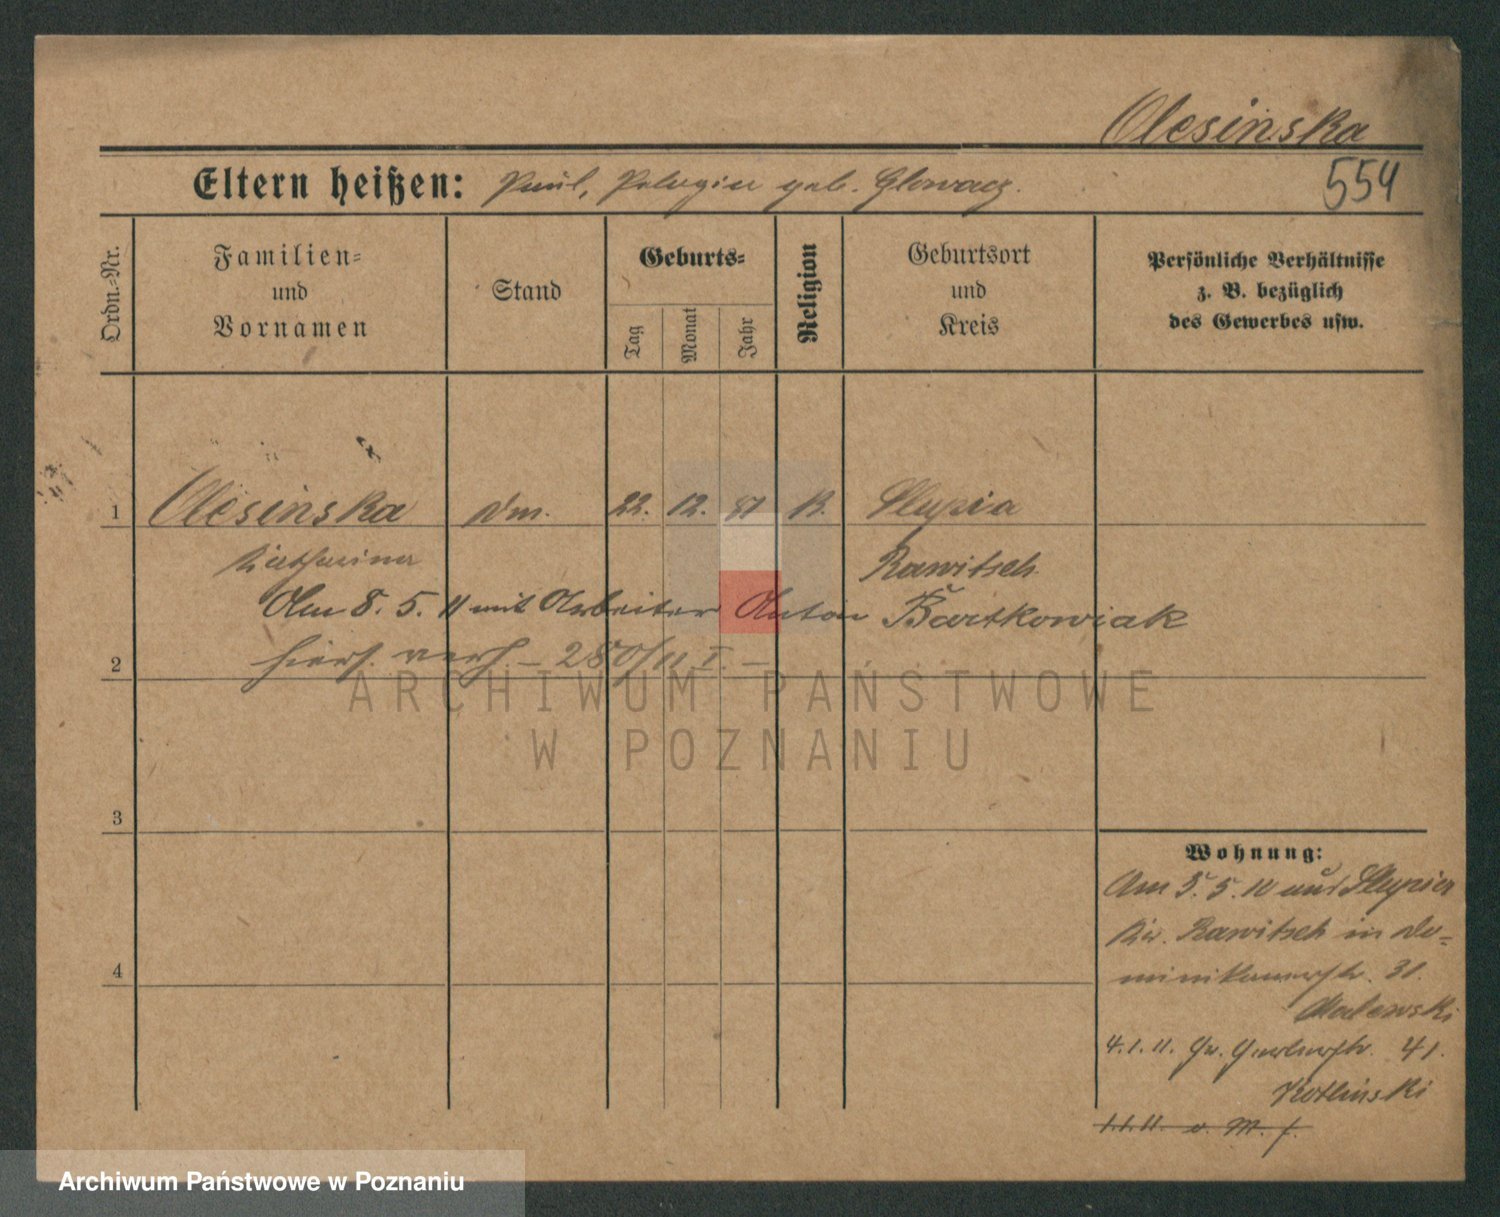 Olesinska
Eltern heißen: Paul, Pelagia geb. Glowacz.
554
Ordn.-Nr.
Familien-
und
Vornamen
Stand
Geburts-
Tag
Monat
Jahr
Religion
Geburtsort
und
Kreis
Persönliche Verhältnisse
z. B. bezüglich
des Gewerbes usw.
1 Olesinska 22. 12. 87 K. Slupia
Katharina Rawitsch
Am 8. 5. 11 mit Arbeiter Anton Bartkowiak
2 hiers. verh. – 280/11 I. –
ARCHIWUM PAŃSTWOWE
W POZNANIU
3
Wohnung:
Am 5. 5. 10 aus Slupia
Kr. Rawitsch in Do-
minikanerstr. 31.
Malewski
4
4. 1. 11. Gr. Gerberstr. 41.
Kotlinski
1.1.11. v. M. f.
Archiwum Państwowe w Poznaniu